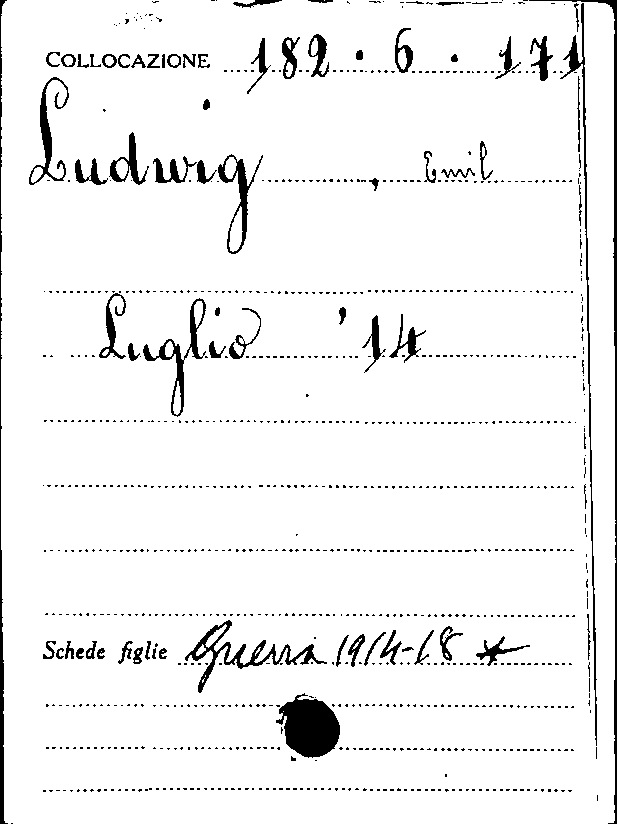 COLLOCAZIONE 182 · 6 · 171
Ludwig, Emil
Luglio '14
Schede figlie Guerra 1914-18 *